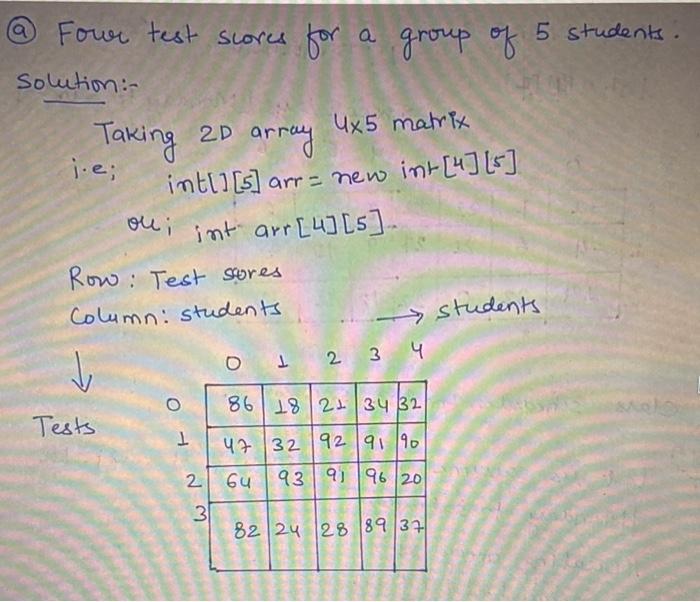 ⓐ Four test scores for a group of 5 students.
Solution:-
Taking 2D array 4x5 matrix
i.e; int[][5] arr = new int[4][5]
or; int arr[4][5]
Row: Test scores
Column: students
→ students
0 1 2 3 4
↓
Tests
0 86 18 21 34 32
1 47 32 92 91 90
2 64 93 91 96 20
3 82 24 28 89 37